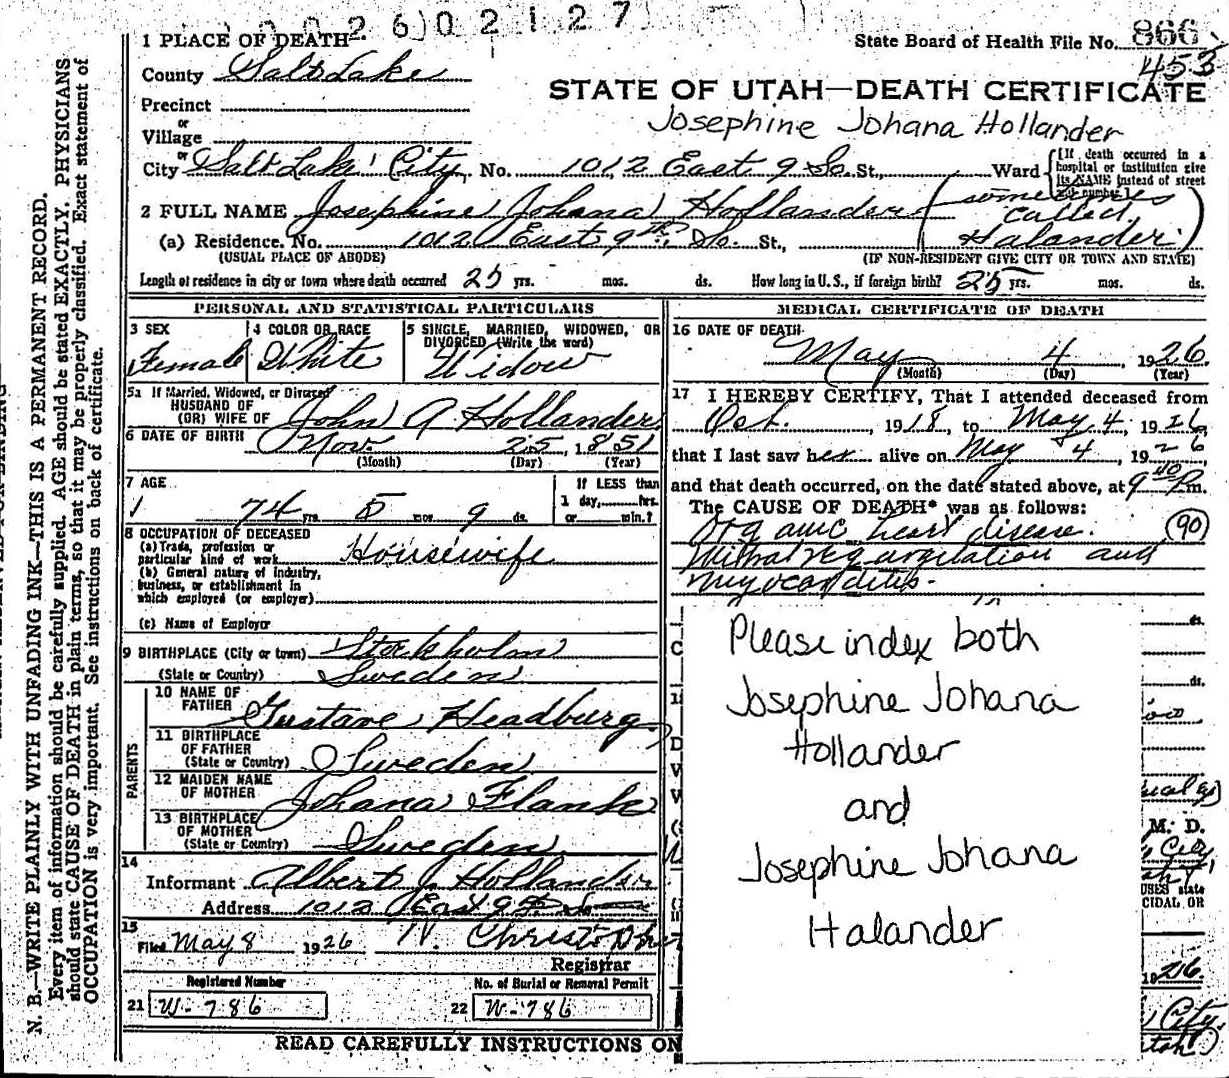 2 6 0 2 1 2 7
State Board of Health File No. 866
453
STATE OF UTAH—DEATH CERTIFICATE
Josephine Johana Hollander
1 PLACE OF DEATH
County Salt Lake
Precinct
or
Village
or
City Salt Lake City No. 1012 East 9 So. St., Ward
(If death occurred in a hospital or institution give its NAME instead of street and number)
2 FULL NAME Josephine Johana Hollander (sometimes called Halander)
(a) Residence. No. 1012 East 9th So. St.,
(USUAL PLACE OF ABODE) (IF NON-RESIDENT GIVE CITY OR TOWN AND STATE)
Length of residence in city or town where death occurred 25 yrs. mos. ds. How long in U.S., if foreign birth? 25 yrs. mos. ds.
PERSONAL AND STATISTICAL PARTICULARS
3 SEX
Female
4 COLOR OR RACE
White
5 SINGLE, MARRIED, WIDOWED, OR
DIVORCED (Write the word)
Widow
5a If Married, Widowed, or Divorced
HUSBAND OF
(OR) WIFE OF John A Hollander
6 DATE OF BIRTH Nov. 25, 1851
(Month) (Day) (Year)
7 AGE
74 yrs. 5 mos. 9 ds.
If LESS than
1 day, hrs.
or min.?
8 OCCUPATION OF DECEASED
(a) Trade, profession or
particular kind of work Housewife
(b) General nature of industry,
business, or establishment in
which employed (or employer)
(c) Name of Employer
9 BIRTHPLACE (City or town) Stockholm
(State or Country) Sweden
PARENTS
10 NAME OF
FATHER Gustave Headburg
11 BIRTHPLACE
OF FATHER
(State or Country) Sweden
12 MAIDEN NAME
OF MOTHER Johana Flank
13 BIRTHPLACE
OF MOTHER
(State or Country) Sweden
14
Informant Albert J. Hollander
Address 1012 East 9th So
15
Filed May 8 1926
Registrar
Registered Number
21 W-786
No. of Burial or Removal Permit
22 W-786
READ CAREFULLY INSTRUCTIONS ON
MEDICAL CERTIFICATE OF DEATH
16 DATE OF DEATH
May 4, 1926.
(Month) (Day) (Year)
17 I HEREBY CERTIFY, That I attended deceased from
Oct., 1918, to May 4, 1926,
that I last saw her alive on May 4, 1926
and that death occurred, on the date stated above, at 9 40 P.m.
The CAUSE OF DEATH* was as follows:
Organic heart disease. (90)
Mitral regurgitation and
myocarditis.
Please index both
Josephine Johana
Hollander
and
Josephine Johana
Halander
ds.
ds.
M. D.
City,
USES state
CIDAL OR
1926.
City,
N. B.—WRITE PLAINLY WITH UNFADING INK—THIS IS A PERMANENT RECORD.
Every item of information should be carefully supplied. AGE should be stated EXACTLY. PHYSICIANS
should state CAUSE OF DEATH in plain terms, so that it may be properly classified. Exact statement of
OCCUPATION is very important. See instructions on back of certificate.